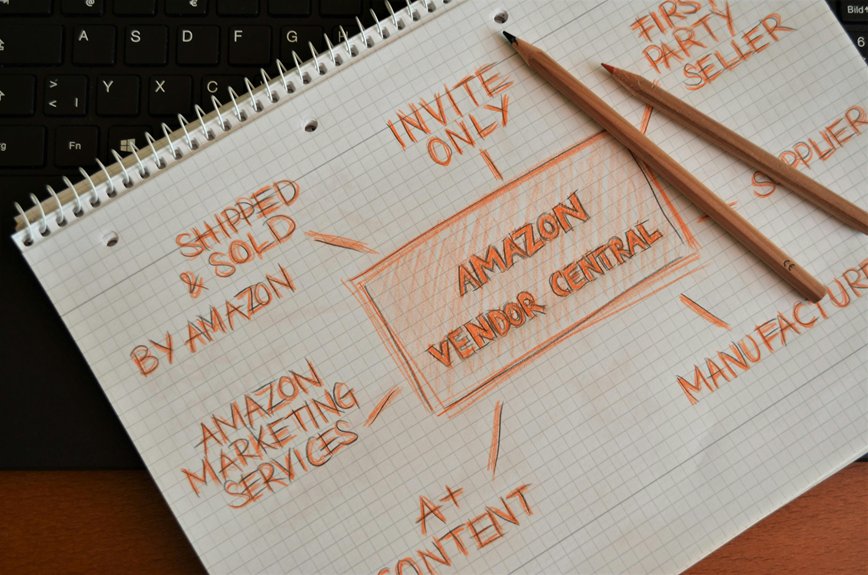 FIRST
PARTY
SELLER
INVITE
ONLY
SUPPLIER
SHIPPED
& SOLD
BY AMAZON
AMAZON
VENDOR CENTRAL
MANUFACTURE
AMAZON
MARKETING
SERVICES
A+
CONTENT
A
S
D
F
G
>
<
|
Y
X
C
Fn
Bild
6